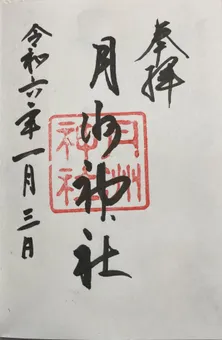 奉拝
月洲神社
月洲神社
令和六年一月三日